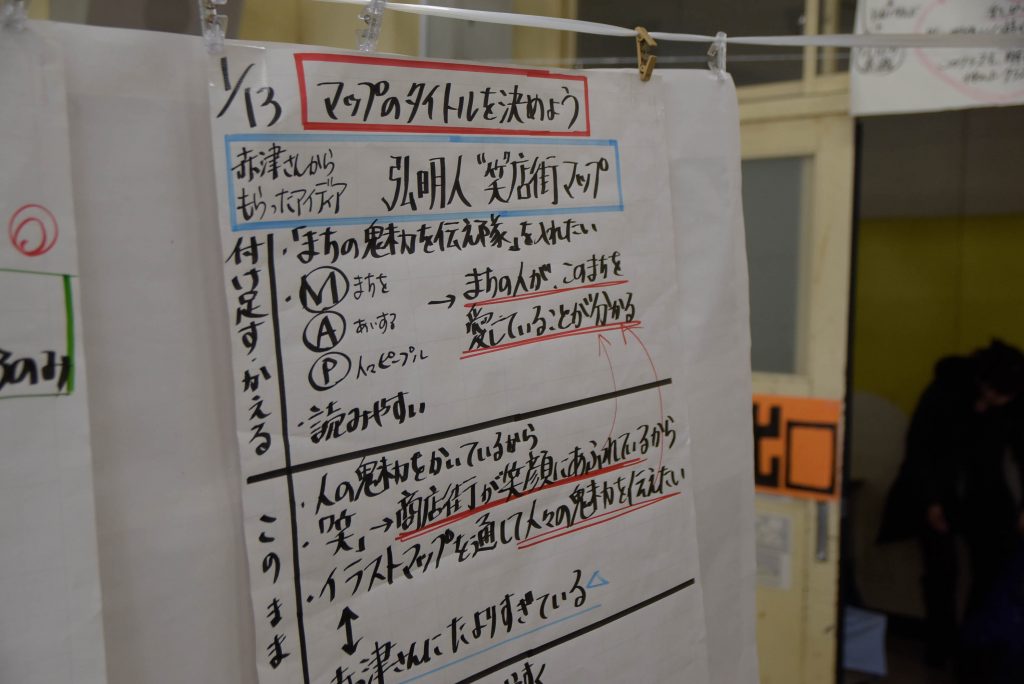 1/13
マップのタイトルを決めよう
赤津さんから
もらったアイディア
弘明人"笑"店街マップ
付け足す・かえる
・「まちの魅力を伝え隊」を入れたい
・Ⓜまちを
Ⓐあいする
Ⓟ人々ピープル
→まちの人が、このまちを
愛していることが分かる
・読みやすい
このまま
・人の魅力をかいているから
・「笑」→商店街が笑顔にあふれているから
・イラストマップを通して人々の魅力を伝えたい
↕
赤津さんにたよりすぎている△
のみ
出口